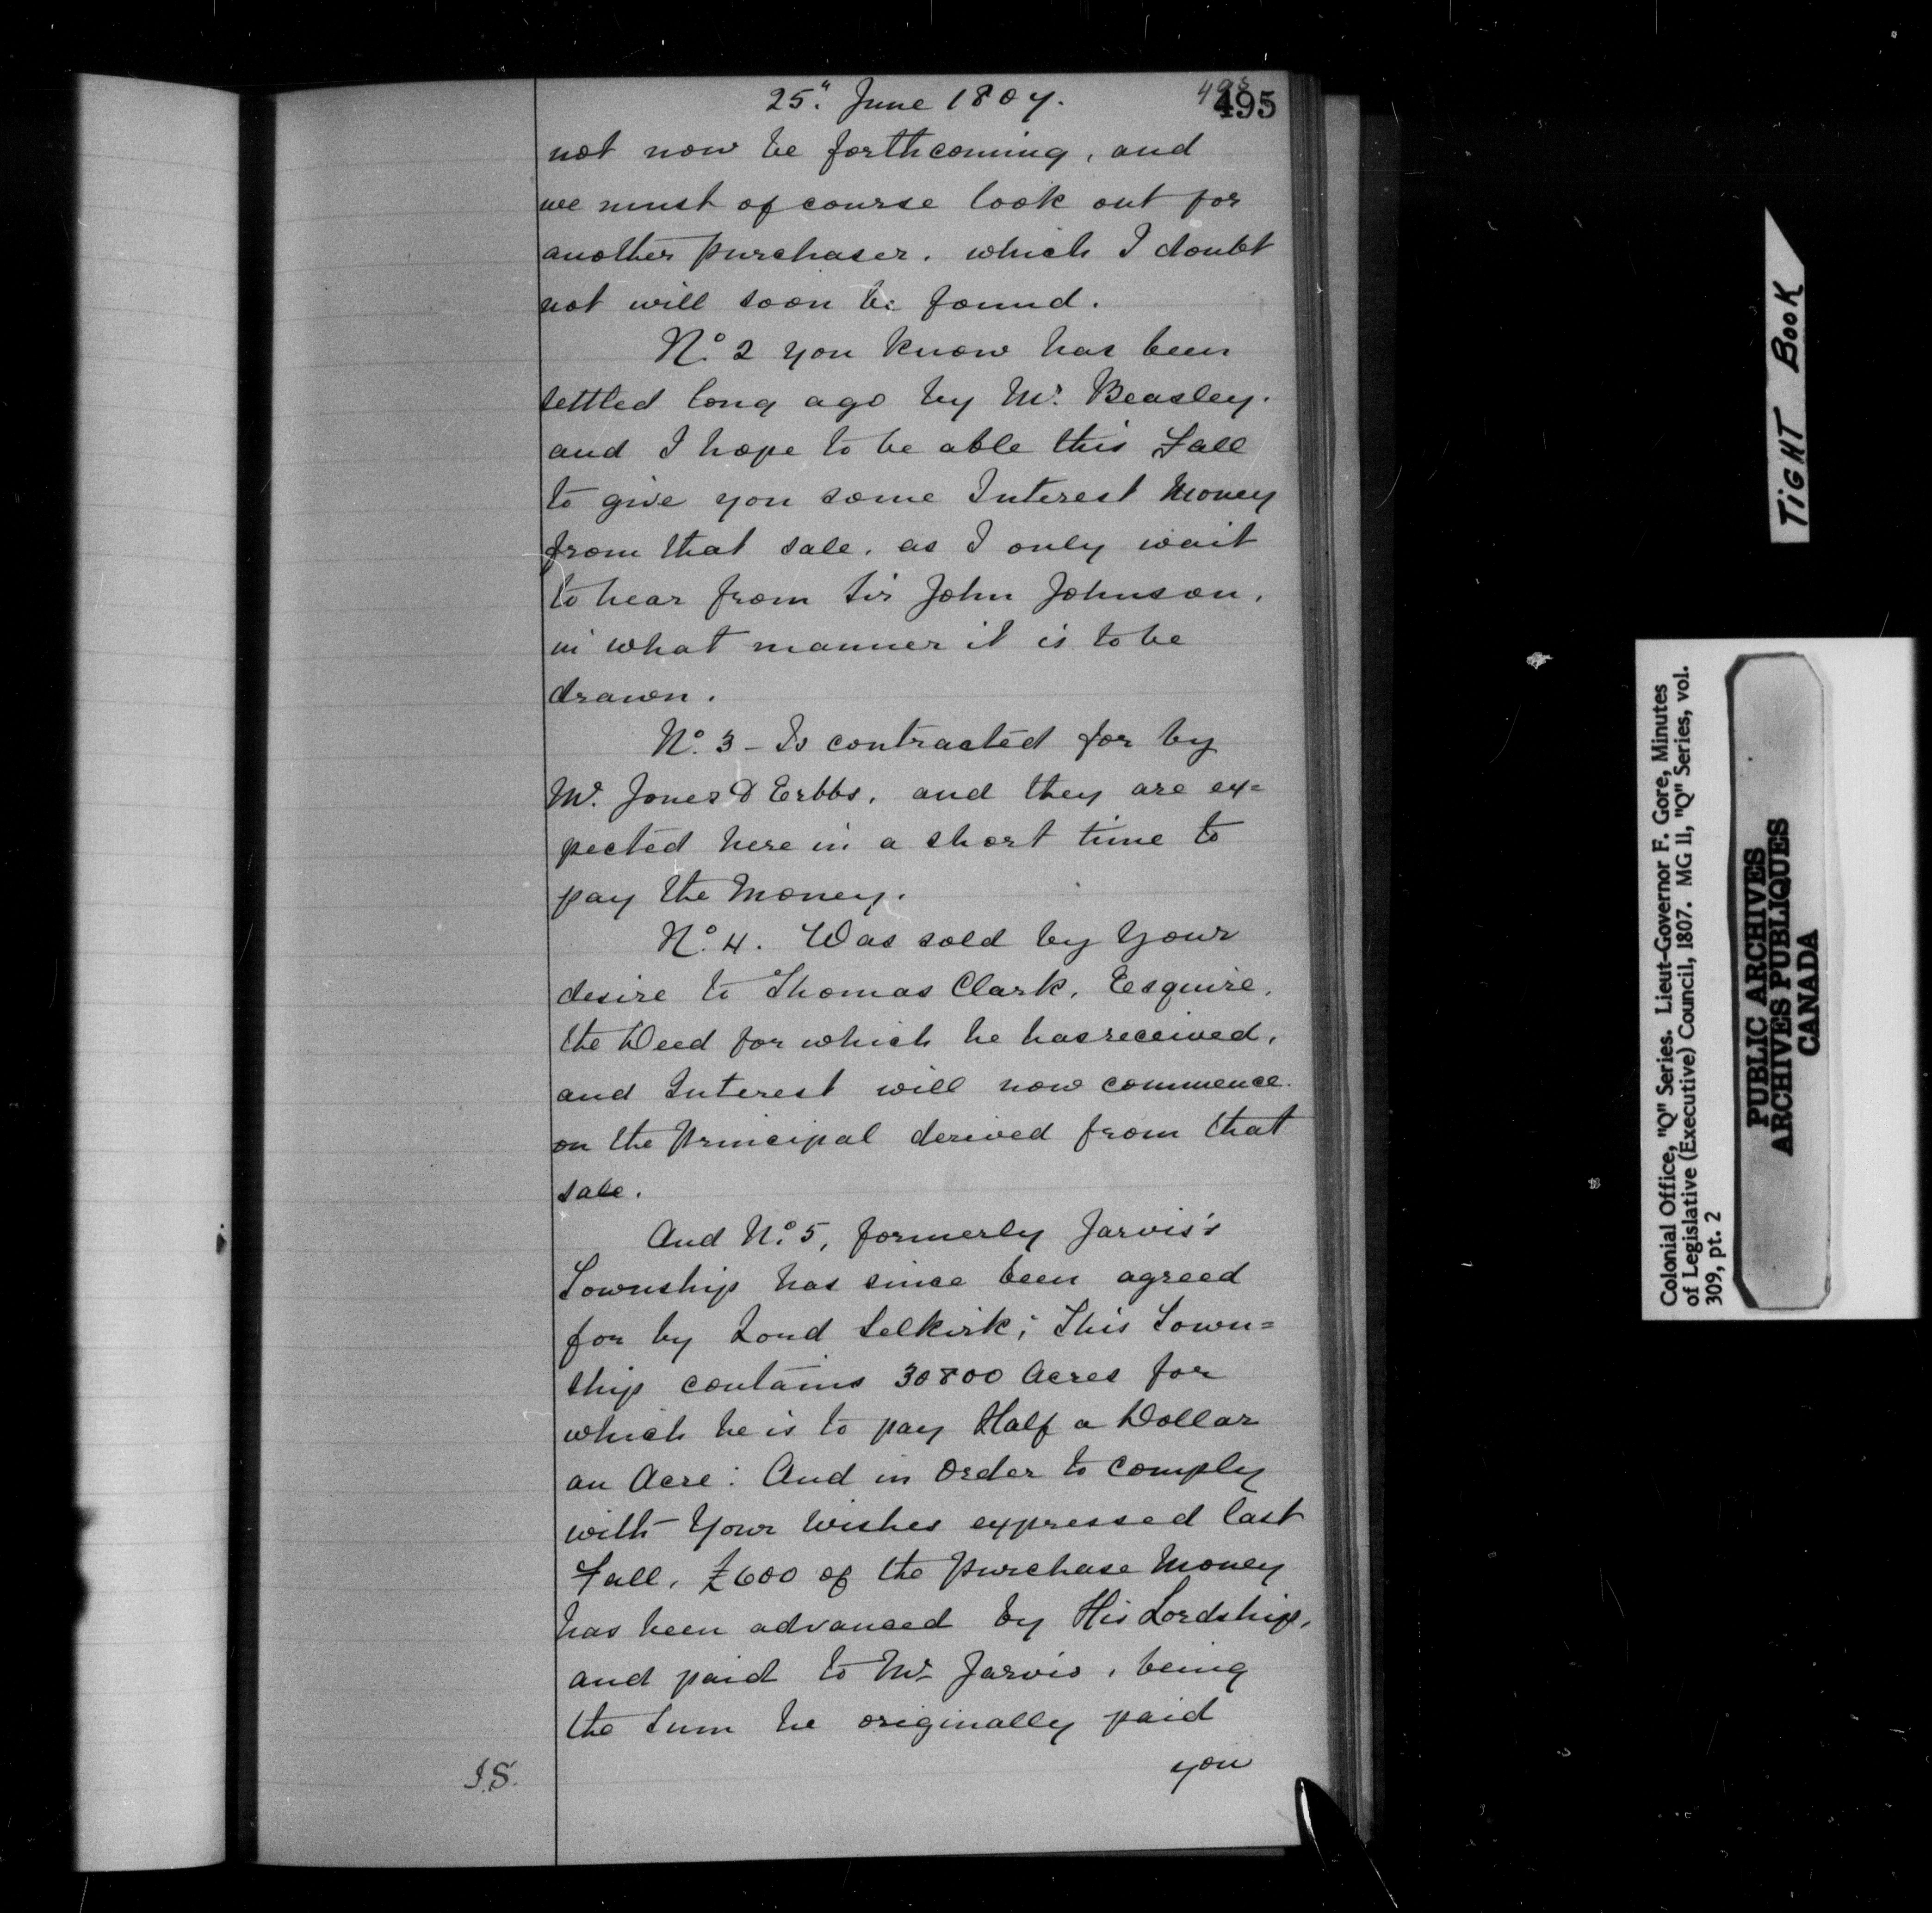 25." June 1807.
495
not now be forthcoming, and
we must of course look out for
another purchaser, which I doubt
not will soon be found.
No. 2 you know has been
settled long ago by Mr. Beasley.
and I hope to be able this Fall
to give you some Interest Money
from that sale, as I only wait
to hear from Sir John Johnson,
in what manner it is to be
drawn.
No. 3 - Is contracted for by
Mr. Jones & Erbbs, and they are ex=
pected here in a short time to
pay the Money.
No. 4. Was sold by Your
desire to Thomas Clark, Esquire,
the Deed for which he has received,
and Interest will now commence
on the Principal derived from that
sale.
And No. 5, formerly Jarvis's
Township has since been agreed
for by Lord Selkirk; This Town=
ship contains 30800 Acres for
which he is to pay Half a Dollar
an Acre: And in Order to comply
with Your Wishes expressed last
Fall, £600 of the purchase Money
has been advanced by His Lordship,
and paid to Mr Jarvis, being
the Sum he originally paid
you
J.S.
TIGHT BOOK
Colonial Office, "Q" Series. Lieut-Governor F. Gore, Minutes
of Legislative (Executive) Council, 1807. MG 11, "Q" Series, vol.
309, pt. 2
PUBLIC ARCHIVES
ARCHIVES PUBLIQUES
CANADA